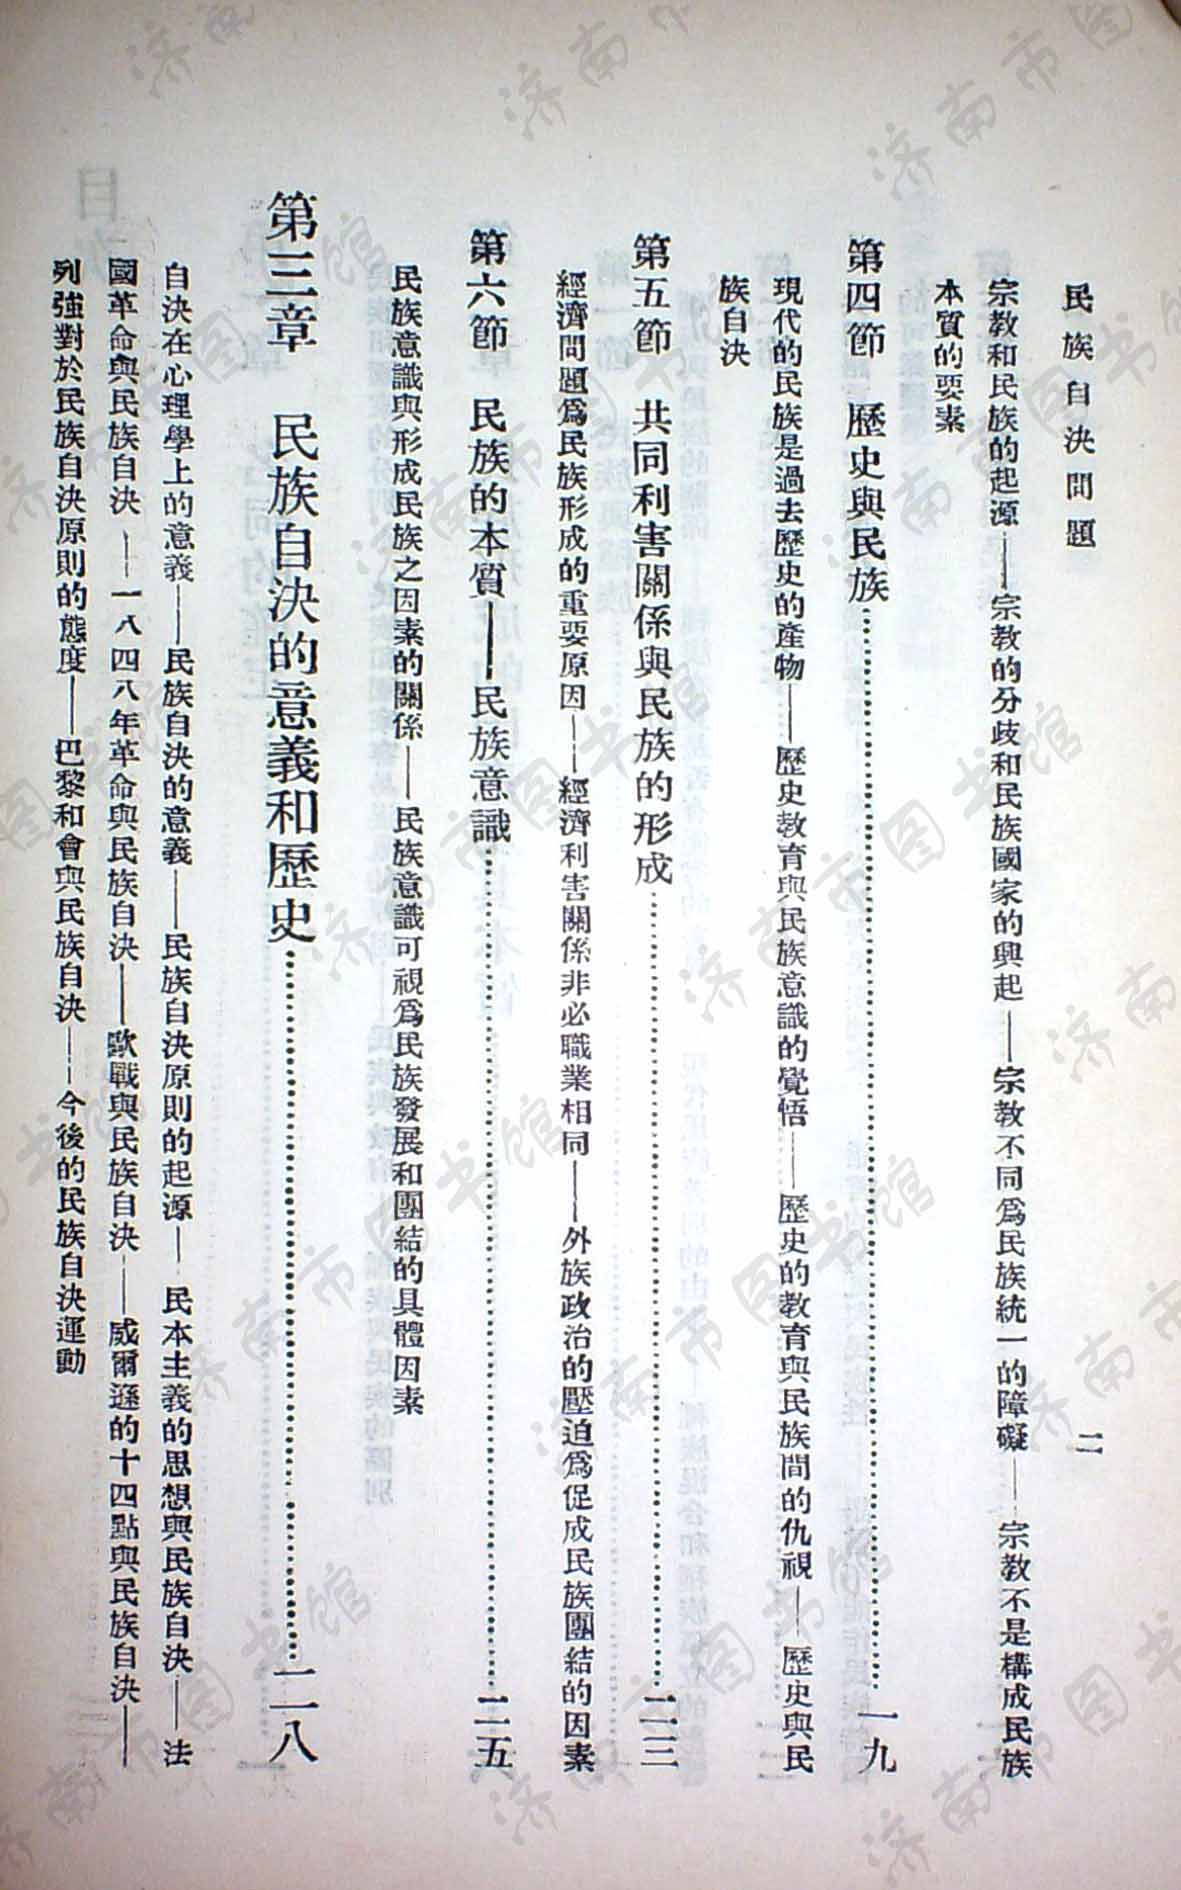 民族自決問題
二
宗教和民族的起源——宗教的分歧和民族國家的興起——宗教不同爲民族統一的障礙——宗教不是構成民族
本質的要素
第四節 歷史與民族……一九
現代的民族是過去歷史的產物——歷史教育與民族意識的覺悟——歷史的教育與民族間的仇視——歷史與民
族自決
第五節 共同利害關係與民族的形成……二三
經濟問題爲民族形成的重要原因——經濟利害關係非必職業相同——外族政治的壓迫爲促成民族團結的因素
第六節 民族的本質——民族意識……二五
民族意識與形成民族之因素的關係——民族意識可視爲民族發展和團結的具體因素
第三章 民族自決的意義和歷史……二八
自決在心理學上的意義——民族自決的意義——民族自決原則的起源——民本主義的思想與民族自決——法
國革命與民族自決——一八四八年革命與民族自決——歐戰與民族自決——威爾遜的十四點與民族自決——
列強對於民族自決原則的態度——巴黎和會與民族自決——今後的民族自決運動
济南市图书馆